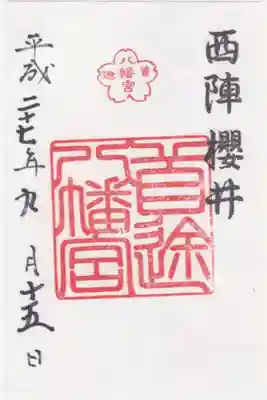 西陣櫻井
八幡宮
首途
首途
八幡宮
平成二十七年九月十五日